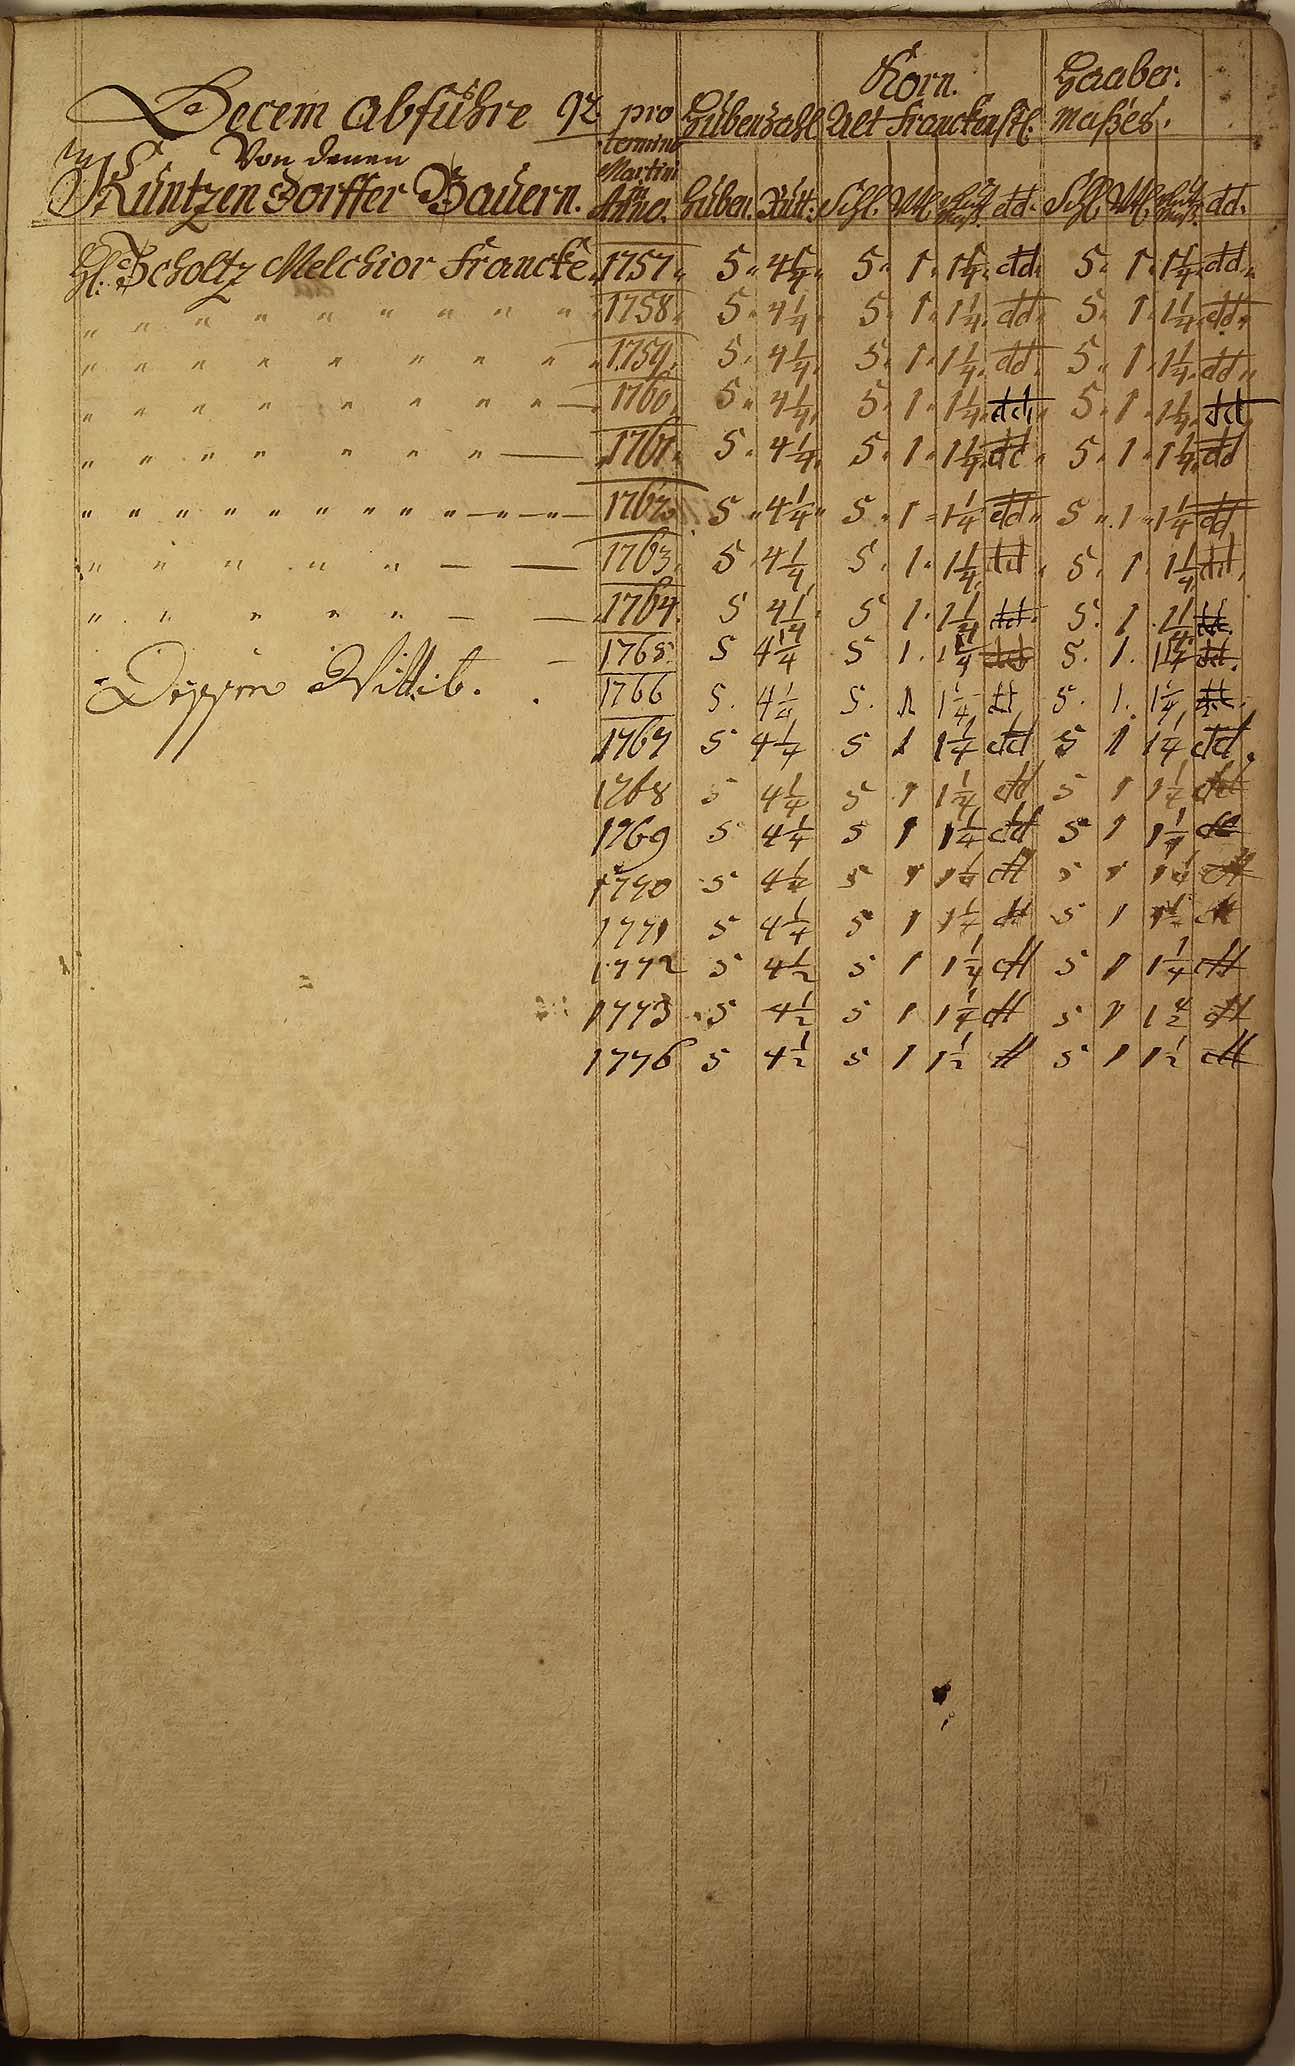 Decem abführe 92. pro Hübenzahl Korn. Haaber.
Alt Franckenstl. Maßes.
Von denen termino Martini
Küntzendorffer Bauern. in Anno. Hüben. Rutt: Schl. Vtl. dd. Schl. Vtl. dd.
Scholtz Melchior Francke 1757 5 4 1/4 5 1 1 1/4 dd 5 1 1 1/4 dd
" " " " " " " " " 1758 5 4 1/4 5 1 1 1/4 dd 5 1 1 1/4 dd
" " " " " " " " " 1759 5 4 1/4 5 1 1 1/4 dd 5 1 1 1/4 dd
" " " " " " " " " — 1760 5 4 1/4 5 1 1 1/4 dd 5 1 1 1/4 dd
" " " " " " " — 1761 5 4 1/4 5 1 1 1/4 dd 5 1 1 1/4 dd
" " " " " " " " " " " " — " — " — 1762 5 4 1/4 5 1 1 1/4 dd 5 1 1 1/4 dd
" " " " " — — 1763 5 4 1/4 5 1 1 1/4 dd 5 1 1 1/4 dd
" " " " " " — — 1764 5 4 1/4 5 1 1 1/4 dd 5 1 1 1/4 dd
— 1765 5 4 1/4 5 1. 1 1/4 dd 5. 1. 1 1/4 dd.
Wittib. 1766 5. 4 1/4 5. 1 1 1/4 dd 5. 1. 1 1/4 dd.
1767 5 4 1/4 5 1 1 1/4 dd 5 1 1 1/4 dd
1768 5 4 1/4 5 1 1 1/4 dd 5 1 1 1/4 dd
1769 5 4 1/4 5 1 1 1/4 dd 5 1 1 1/4 dd
1770 5 4 1/2 5 1 dd 5 1 dd
1771 5 4 1/4 5 1 1 1/4 dd 5 1 dd
1772 5 4 1/2 5 1 1 1/4 dd 5 1 1 1/4 dd
1773 5 4 1/2 5 1 1 1/4 dd 5 1 dd
1776 5 4 1/2 5 1 1 1/2 dd 5 1 1 1/2 dd